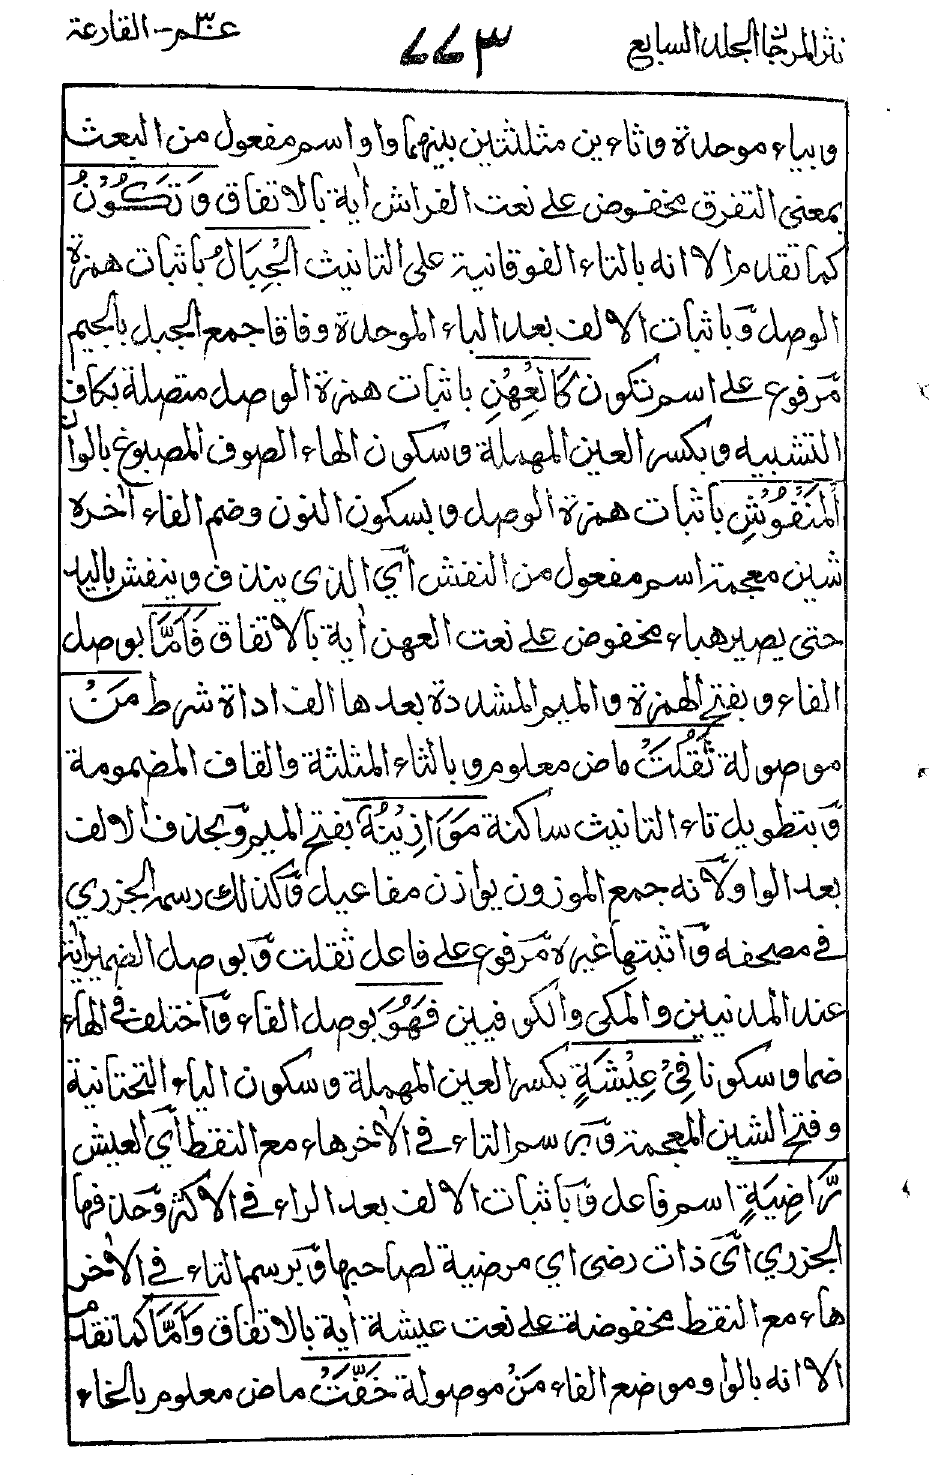 نثر المرجان الجلد السابع
٧٧٣
عم ٣٠ - القارعة
وبياء موحدة وثاءين مثلثتين بينهما واو اسم مفعول من البعث
بمعنى التفرق مخفوض على نعت الفراش اٰية بالاتفاق وَتَكُوْنُ
كما تقدم الا انه بالتاء الفوقانية على التانيث الْجِبَالُ باثبات همزة
الوصل وباثبات الالف بعد الباء الموحدة وفاقا جمع الجبل بالجيم
مرفوع على اسم تكون كَالْعِهْنِ باثبات همزة الوصل متصلة بكاف
التشبيه وبكسر العين المهملة وسكون الهاء الصوف المصبوغ بالوان
الْمَنْفُوْشِ باثبات همزة الوصل وبسكون النون وضم الفاء اٰخره
شين معجمة اسم مفعول من النفش اي الذى يندف وينفش باليد
حتى يصير هباء مخفوض على نعت العهن اٰية بالاتفاق فَاَمَّا بوصل
الفاء وبفتح الهمزة والميم المشددة بعدها الف اداة شرط مَنْ
موصولة ثَقُلَتْ ماض معلوم وبالثاء المثلثة والقاف المضمومة
وبتطويل تاء التانيث ساكنة مَوَازِيْنُهٗ بفتح الميم وبحذف الالف
بعد الواو لانه جمع الموزون يوازن مفاعيل وكذلك رسمه الجزري
في مصحفه واثبتها غيره مرفوع على فاعل ثقلت وبوصل الضمير اٰية
عند المدنيين والمكى والكوفيين فَهُوَ بوصل الفاء واختلف في الهاء
ضما وسكونا فِيْ عِيْشَةٍ بكسر العين المهملة وسكون الياء التحتانية
وفتح الشين المعجمة وبرسم التاء في الاٰخر هاء مع النقط اي العيش
رَّاضِيَةٍ اسم فاعل وباثبات الالف بعد الراء في الاكثر وحذفها
الجزري اي ذات رضى اي مرضية لصاحبها وبرسم التاء في الاٰخر
هاء مع النقط مخفوضة على نعت عيشة اٰية بالاتفاق وَاَمَّا كما تقدم
الا انه بالواو موضع الفاء مَنْ موصولة خَفَّتْ ماض معلوم بالخاء